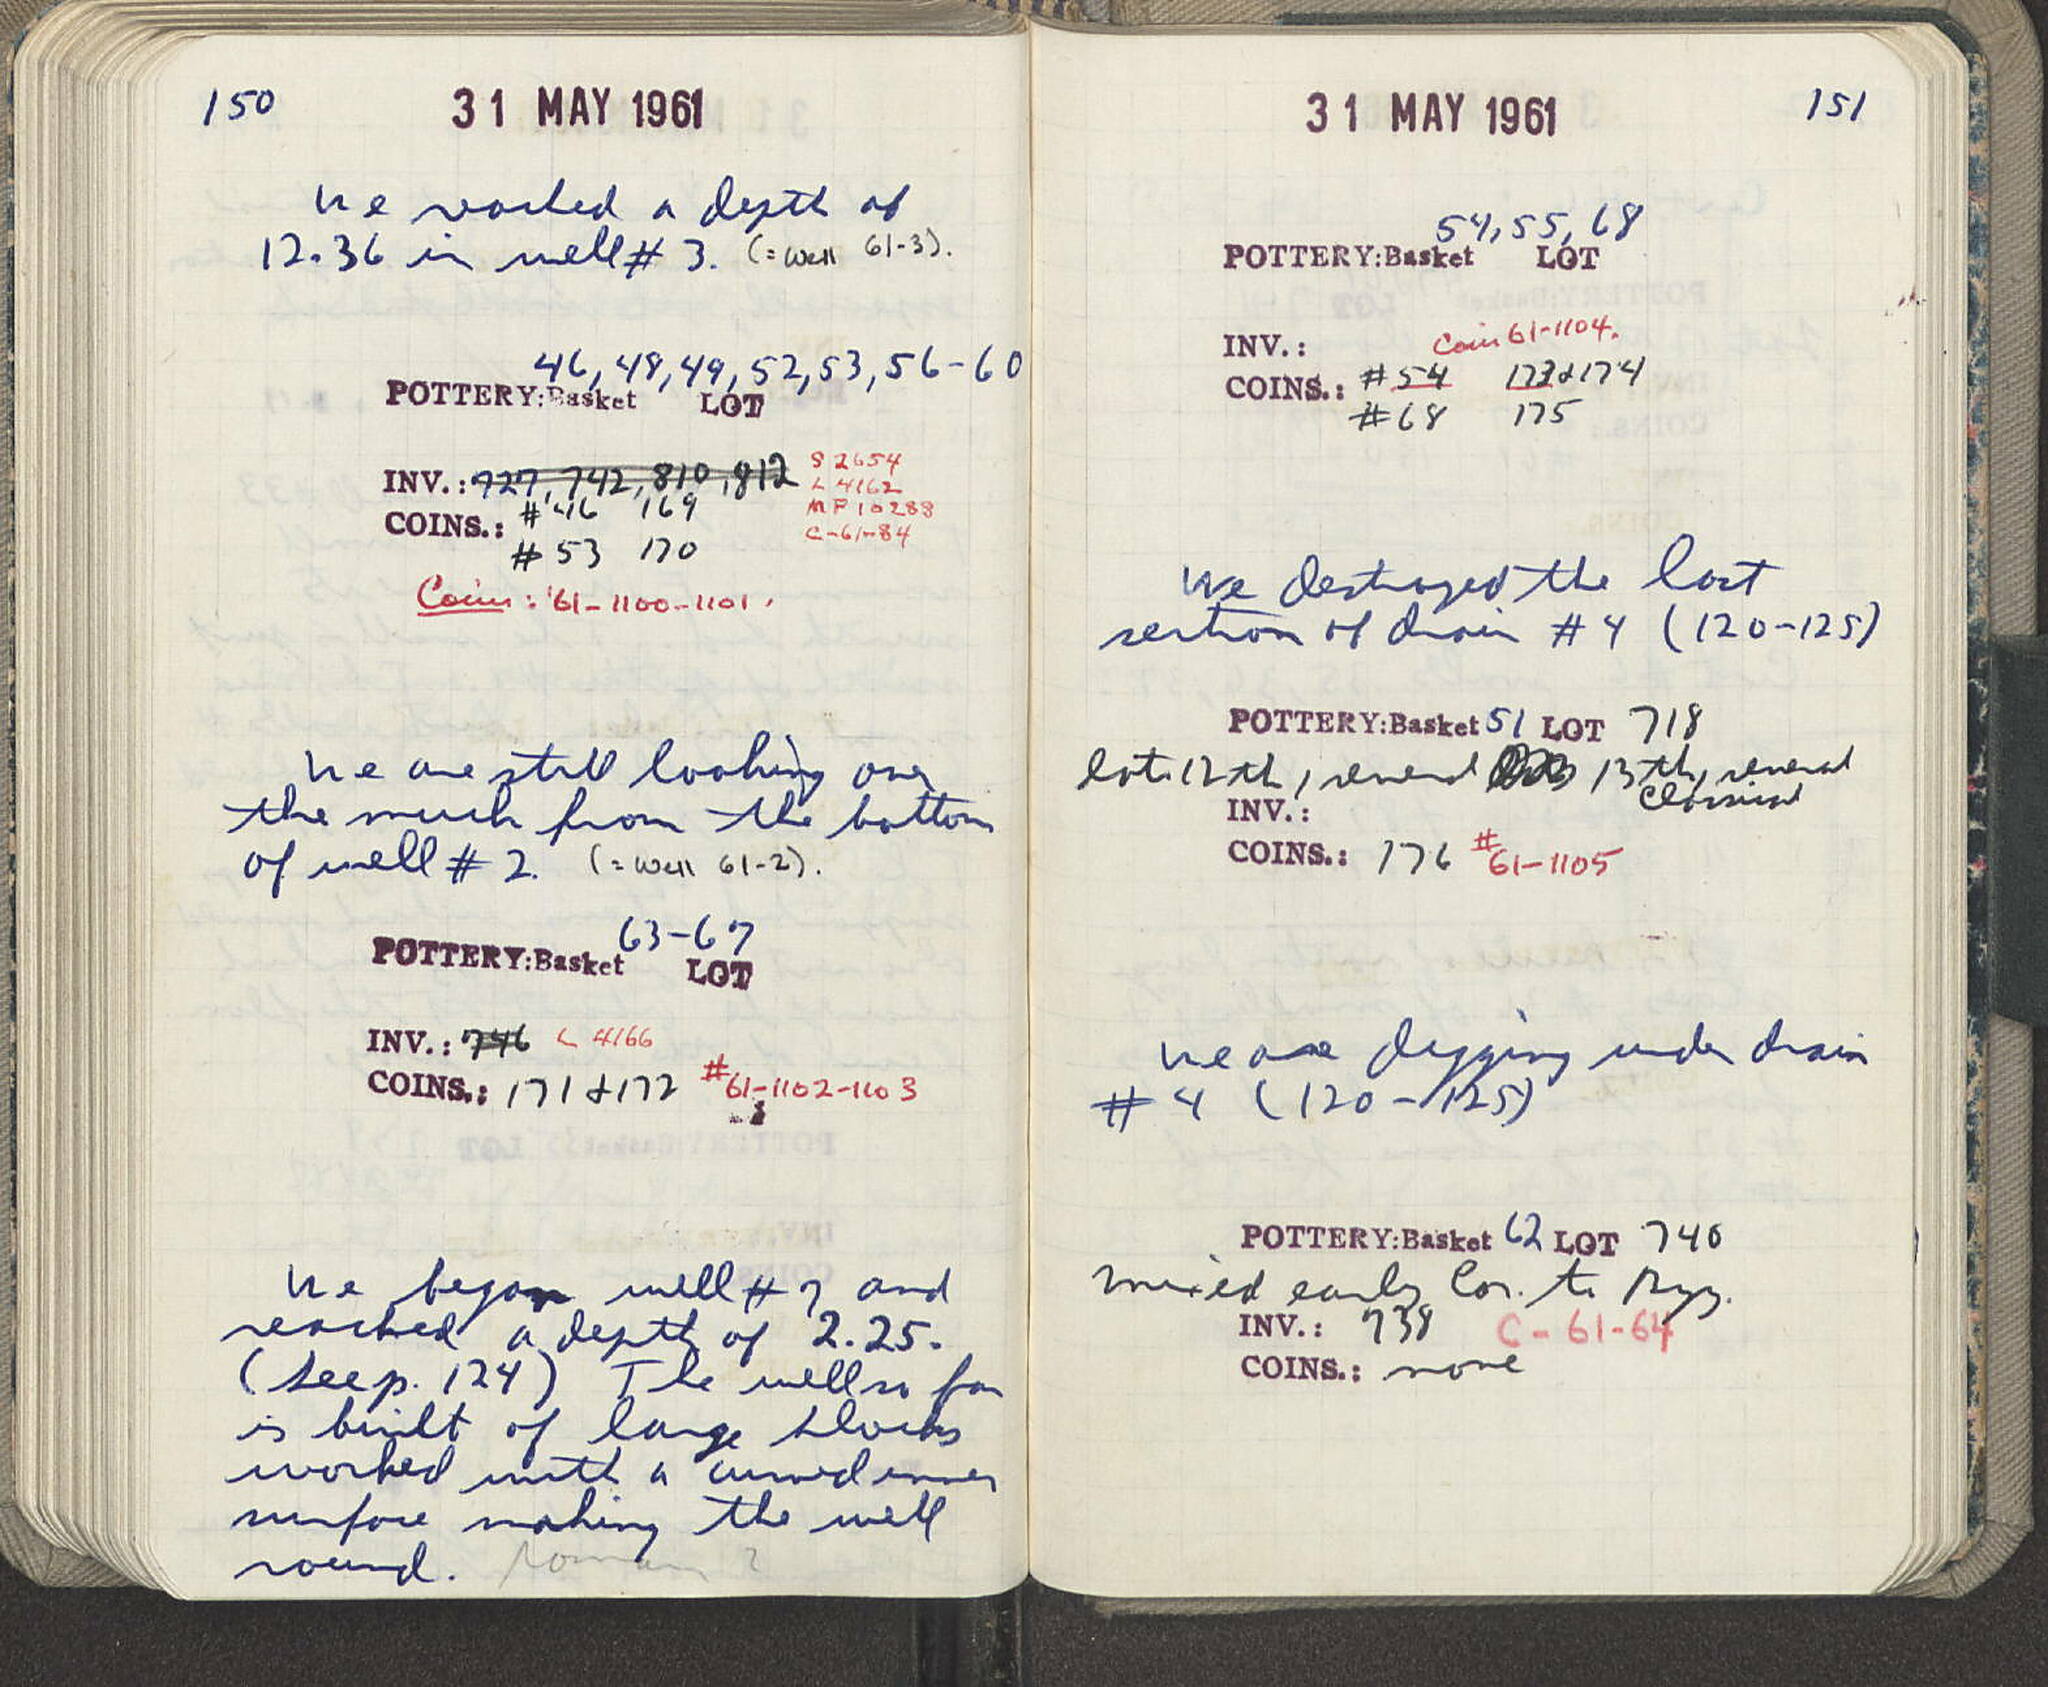 150
31 MAY 1961
We reached a depth of
12.36 in well # 3. (= well 61-3).
46, 48, 49, 52, 53, 56-60
POTTERY: Basket LOT
INV.: 727, 742, 810, 812 S 2654
L 4162
COINS.: #46 169 MF 10288
C-61-84
#53 170
Coins: '61-1100-1101.
We are still looking over
the muck from the bottom
of well # 2. (= well 61-2).
63-67
POTTERY: Basket LOT
INV.: 746 L 4166
COINS.: 171 & 172 # 61-1102-1103
We began well # 7 and
reached a depth of 2.25.
(see p. 124) The well so far
is built of large blocks
worked with a curved inner
surface making the well
round. Roman ?
31 MAY 1961
151
54, 55, 68
POTTERY: Basket LOT
INV.: Coin 61-1104.
COINS.: #54 173 & 174
#68 175
We destroyed the last
section of drain # 4 (120-125)
POTTERY: Basket 51 LOT 718
late 12th, several 13th, several
Classical
INV.:
COINS.: 176 # 61-1105
We are digging under drain
# 4 (120-125)
POTTERY: Basket 62 LOT 740
mixed early Cor. to Byz.
INV.: 738 C-61-64
COINS.: none